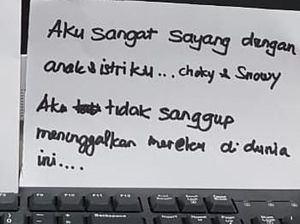 Aku sangat sayang dengan
anak & istriku... choky & Snowy
Aku tidak sanggup
meninggalkan mereka di dunia
ini....
Backspace